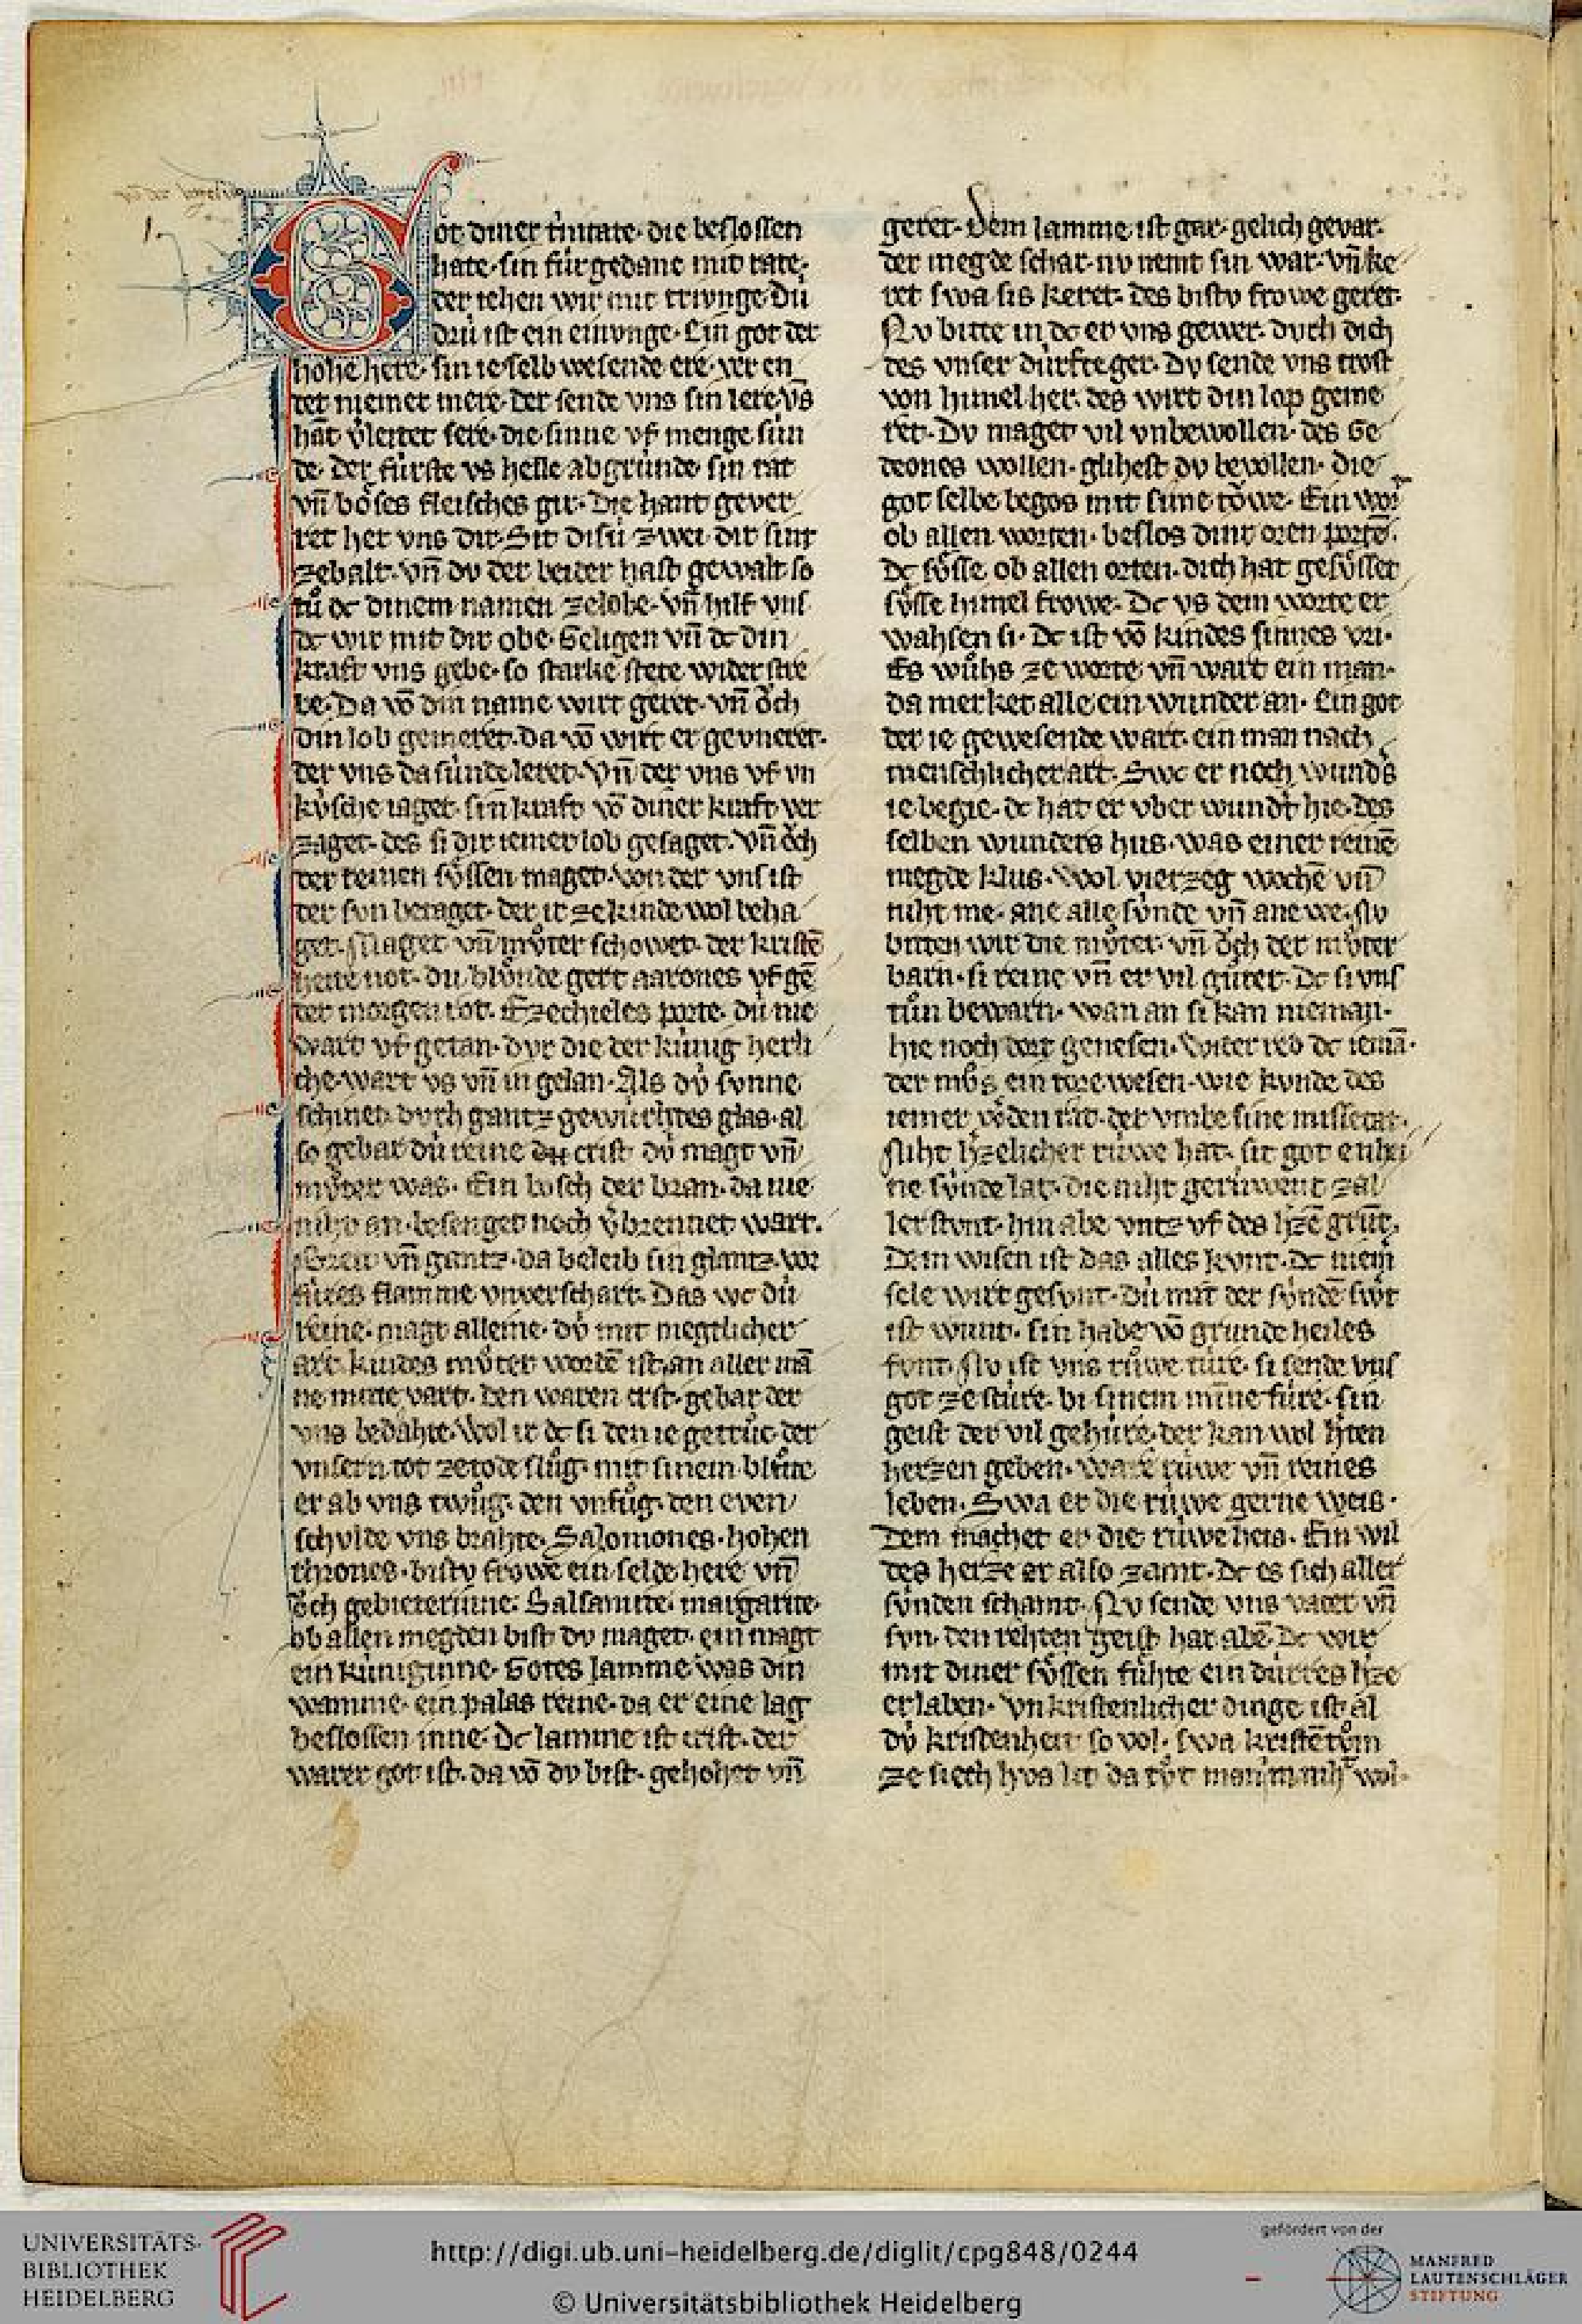 Got diner trinitate· die beslossen
hate· sin fúrgedanc mit rate·
der iehen wir mit trivnge· Dú
drú ist ein einvnge· Ein got der
hohe here· sin ie selb wesende ere· ver en
det niemer mere· der sende vns sin lere· Vns
hat v̾leitet sere· die sinne vf menge sún
de· der fúrste vs helle abgrúnde· sin rat
vn̄ bo̊ses fleisches gir· Die hant gever
ret her vns dir· Sit disú zwei dir sint
ze balt· vn̄ dv der beider hast gewalt so
tů dc dinem namen ze lobe· vn̄ hilf vns
dc wir mit dir obe· Geligen vn̄ dc din
kraft vns gebe· so starke stete wider stre
be· Da vō din name wirt geret· vn̄ o̊ch
din lob gemeret· da vō wirt er gevneret·
der vns da súnde leret· Vn̄ der vns vf vn
kúsche iaget· sin kraft vō diner kraft ver
zaget· des si dir iemer lob gesaget· vn̄ o̊ch
der reinen sůssen maget· von der vns ist
der svn betaget· der ir ze kinde wol beha
get· Maget vn̄ můter schowet· der kristē
heite not· du blůnde gert aarones vf gē
der morgen rot· Ezechieles porte· dú nie
wart vf getan· dvr die der kúnig herli
che· wart vs vn̄ in gelan· Als dú sunne
schinet· dvrh gantz gewúrhtes glas· al
so gebar dú reine crist· dú magt vn̄
můter was· Ein bosch der bran· da nie
niht an· besenget noch v̾brennet wart·
vn̄ gantz· da beleib sin glantz· vor
fúres flamme vnverschart· Das wc dú
reine· magt alleine· dú mit megtlicher
art· kindes můter wordē ist· an aller mā
ne mitte vart· den waren crist· gebar der
vns bedahte· Wol ir dc si den ie getrůc· der
vnsern tot ze tode slůg· mit sinem blůte
er ab vns twůg· den vnfůg· den even
schvlde vns brahte· Salomones· hohen
thrones· bistv frowe ein selde here vn̄
o̊ch gebieterinne· Balsamite· margarite·
ob allen megden bist dv maget· ein magt
ein kúniginne· Gotes lamme was din
wamme· ein palas reine· da er eine lag
beslossen inne· Dc lamme ist crist· der
warer got ist· da vō dv bist· gehohet vn̄
geret· Dem lamme ist gar· gelich gevar·
der megde schar· nv nemt sin war· vn̄ ke
ret swa sis keret· des bistv frowe geret·
Nv bitte in dc er vns gewer· dvrh dich
des vnser dúrfte ger· Dv sende vns trost
von himel her· des wirt din lop geme
ret· Dv maget vil vnbewollen· des Ge
deones wollen· glihest dv bewollen· die
got selbe begos mit sime towe· Ein wort
ob allen worten· beslos dinr oren portē·
Dc sůsse ob allen orten· dich hat gesůsset
sůsse himel frowe· Dc vs dem worte er
wahsen si· Dc ist vō kindes sinnes vri·
Es wůhs ze worte vn̄ wart ein man·
da merket alle ein wunder an· Ein got
der ie gewesende wart· ein man nach
menschlicher art· Swc er noch wunders
ie begie· dc hat er vber wundt hie· des
selben wunders hus· was einer reinē
megde klus· Wol vierzeg wochē vn̄
niht me· ane alle súnde vn̄ ane we· Nv
bitten wir die můter· vn̄ o̊ch der můter
barn· si reine vn̄ er vil gůter· Dc si vns
tůn bewarn· wan an si kan nieman·
hie noch dort genesen· Wider red dc iemā·
der můs ein tore wesen· wie kunde des
iemer werden rat· der vmbe sine missetat·
niht h̾zelicher rúwe hat· sit got enhei
ne súnde lat· die niht gerúwent zal
ler stvnt· hin abe vntz vf des h̾zē grūt·
Dem wisen ist das alles kvnt· dc niem̄
sele wirt gesvnt· Dú mit der súndē swrt
ist wunt· sin habe vō grunde heiles
funt· Nv ist vns rúwe túre· si sende vns
got ze stúre· bi sinem mīne fúre· sin
geist der vil gehúre· der kan wol h̾ten
herzen geben· ware rúwe vn̄ reines
leben· Swa er die rúwe gerne weis·
Dem machet er die rúwe heis· Ein wil
des herze er also zamt· Dc es sich aller
súnden schamt· Nv sende vns vater vn̄
svn· den rehten geist har abe· Dc wir
mit diner sůssen fúhte ein dúrres h̾ze
erlaben· Vnkristenlicher dinge ist al
dú kristenheit so vol· swa kristētům
ze siech hvs lit da tůt man im niht wol·
UNIVERSITÄTS-
BIBLIOTHEK
HEIDELBERG
http://digi.ub.uni-heidelberg.de/diglit/cpg848/0244
© Universitätsbibliothek Heidelberg
gefördert von der
MANFRED
LAUTENSCHLÄGER
STIFTUNG